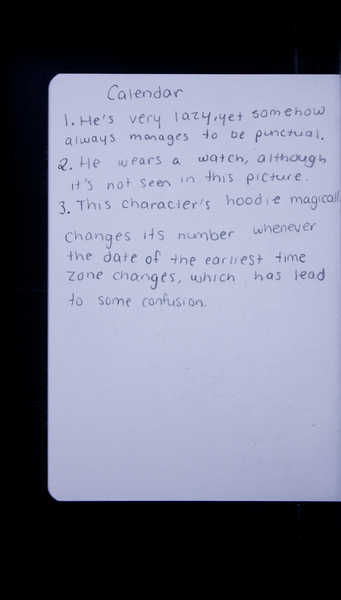 Calendar
1. He's very lazy, yet somehow
always manages to be punctual.
2. He wears a watch, although
it's not seen in this picture.
3. This character's hoodie magicall
changes its number whenever
the date of the earliest time
zone changes, which has lead
to some confusion.